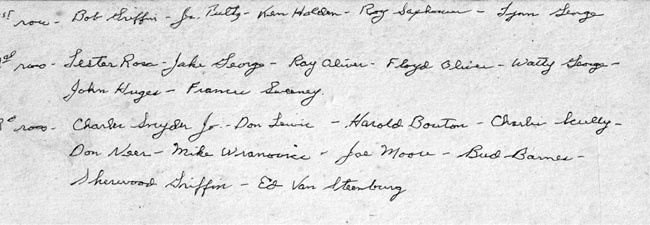 st row - Bob Griffin - Jr. Petty - Ken Holden - Roy Saphouse - Lynn George
row - Lester Rosa - Jake George - Ray Oliver - Floyd Oliver - Watty George -
John Huges - Francis Sweeney
row - Charles Snyder Jr. - Don Lewis - Harold Bouton - Charlie Scully -
Don Neer - Mike Wranovics - Joe Moore - Bud Barnes -
Sherwood Griffin - Ed Van Steenburg